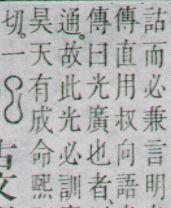 詁而必兼言明
傳直用叔向語
傳曰光廣也者、
通。故此光必訓
昊天有成命熙
切。一古文